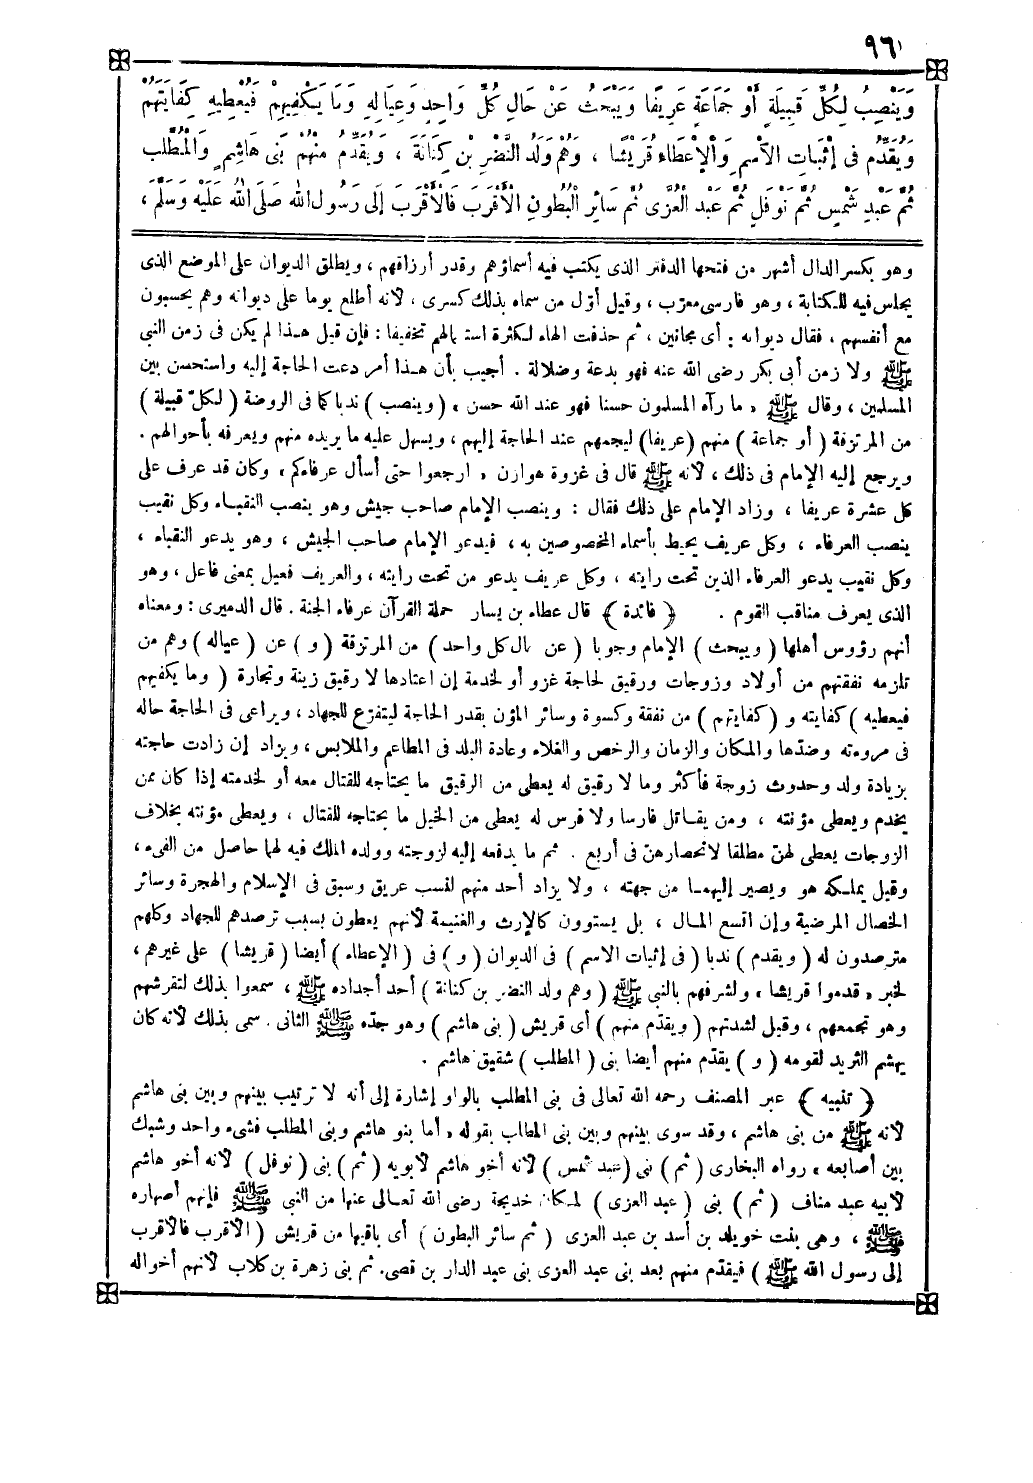 ٩٦
وَيَنْصِبُ لِكُلِّ قَبِيلَةٍ أَوْ جَمَاعَةٍ عَرِيفًا وَيَبْحَثُ عَنْ حَالِ كُلِّ وَاحِدٍ وَعِيَالِهِ وَمَا يَكْفِيهِمْ فَيُعْطِيهِ كِفَايَتَهُمْ
وَيُقَدِّمُ فِى إِثْبَاتِ الِاسْمِ وَالْإِعْطَاءِ قُرَيْشًا ، وَهُمْ وَلَدُ النَّضْرِ بْنِ كِنَانَةَ ، وَيُقَدِّمُ مِنْهُمْ بَنِى هَاشِمٍ وَالْمُطَّلِبِ
ثُمَّ عَبْدِ شَمْسٍ ثُمَّ نَوْفَلٍ ثُمَّ عَبْدِ الْعُزَّى ثُمَّ سَائِرِ الْبُطُونِ الْأَقْرَبَ فَالْأَقْرَبَ إِلَى رَسُولِ اللهِ صَلَّى اللهُ عَلَيْهِ وَسَلَّمَ ،
وهو بكسر الدال أشهر من فتحها الدفتر الذى يكتب فيه أسماؤهم وقدر أرزاقهم ، ويطلق الديوان على الموضع الذى
يجلس فيه للكتابة ، وهو فارسى معرّب ، وقيل أوّل من سماه بذلك كسرى ، لأنه أطلع يوما على ديوانه وهم يحسبون
مع أنفسهم ، فقال ديوانه : أى مجانين ، ثم حذفت الهاء لكثرة استعمالهم تخفيفا : فإن قيل هذا لم يكن فى زمن النبى
ﷺ ولا زمن أبى بكر رضى الله عنه فهو بدعة وضلالة . أجيب بأن هذا أمر دعت الحاجة إليه واستحسن بين
المسلمين ، وقال ﷺ « ما رآه المسلمون حسنا فهو عند الله حسن » ( وينصب ) ندبا كما فى الروضة ( لكلّ قبيلة )
من المرتزقة ( أو جماعة ) منهم ( عريفا ) ليجمعهم عند الحاجة إليهم ، ويسهل عليه ما يريده منهم ويعرفه بأحوالهم .
ويرجع إليه الإمام فى ذلك ، لأنه ﷺ قال فى غزوة هوازن « ارجعوا حتى أسأل عرفاءكم » وكان قد عرف على
كل عشرة عريفا ، وزاد الإمام على ذلك فقال : وينصب الإمام صاحب جيش وهو ينصب النقباء وكل نقيب
ينصب العرفاء ، وكل عريف يحيط بأسماء المخصوصين به ، فيدعو الإمام صاحب الجيش ، وهو يدعو النقباء ،
وكل نقيب يدعو العرفاء الذين تحت رايته ، وكل عريف يدعو من تحت رايته ، والعريف فعيل بمعنى فاعل ، وهو
الذى يعرف مناقب القوم . ﴿ فائدة ﴾ قال عطاء بن يسار حملة القرآن عرفاء الجنة . قال الدميرى : ومعناه
أنهم رؤوس أهلها ( ويبحث ) الإمام وجوبا ( عن حال كل واحد ) من المرتزقة ( و ) عن ( عياله ) وهم من
تلزمه نفقتهم من أولاد وزوجات ورقيق لحاجة غزو أو لخدمة إن اعتادها لا رقيق زينة وتجارة ( وما يكفيهم
فيعطيه ) كفايته و ( كفايتهم ) من نفقة وكسوة وسائر المؤن بقدر الحاجة ليتفرّغ للجهاد ، ويراعى فى الحاجة حاله
فى مروءته وضدّها والمكان والزمان والرخص والغلاء وعادة البلد فى المطاعم والملابس ، ويزاد إن زادت حاجته
بزيادة ولد وحدوث زوجة فأكثر وما لا رقيق له يعطى من الرقيق ما يحتاجه للقتال معه أو لخدمته إذا كان ممن
يخدم ويعطى مؤنته ، ومن يقاتل فارسا ولا فرس له يعطى من الخيل ما يحتاجه للقتال ، ويعطى مؤنته بخلاف
الزوجات يعطى لهنّ مطلقا لانحصارهنّ فى أربع . ثم ما يدفعه إليه لزوجته وولده الملك فيه لهما حاصل من الفىء ،
وقيل يملكه هو ويصير إليهما من جهته ، ولا يزاد أحد منهم لنسب عريق وسبق فى الإسلام والهجرة وسائر
الخصال المرضية وإن اتسع المال ، بل يستوون كالإرث والغنيمة لأنهم يعطون بسبب ترصدهم للجهاد وكلهم
مترصدون له ( ويقدم ) ندبا ( فى إثبات الاسم ) فى الديوان ( و ) فى ( الإعطاء ) أيضا ( قريشا ) على غيرهم ،
لخبر « قدموا قريشا » ولشرفهم بالنبى ﷺ ( وهم ولد النضر بن كنانة ) أحد أجداده ﷺ ، سموا بذلك لتقرشهم
وهو تجمعهم ، وقيل لشدتهم ( ويقدّم منهم ) أى قريش ( بنى هاشم ) وهو جدّه ﷺ الثانى . سمى بذلك لأنه كان
يهشم الثريد لقومه ( و ) يقدّم منهم أيضا بنى ( المطلب ) شقيق هاشم .
﴿ تنبيه ﴾ عبر المصنف رحمه الله تعالى فى بنى المطلب بالواو إشارة إلى أنه لا ترتيب بينهم وبين بنى هاشم
لأنه ﷺ من بنى هاشم ، وقد سوى بينهم وبين بنى المطلب بقوله « أما بنو هاشم وبنى المطلب فشىء واحد وشبك
بين أصابعه » رواه البخارى ( ثم ) بنى ( عبد شمس ) لأنه أخو هاشم لأبويه ( ثم ) بنى ( نوفل ) لأنه أخو هاشم
لأبيه عبد مناف ( ثم ) بنى ( عبد العزى ) لمكان خديجة رضى الله تعالى عنها من النبى ﷺ فإنهم أصهاره
ﷺ ، وهى بنت خويلد بن أسد بن عبد العزى ( ثم سائر البطون ) أى باقيها من قريش ( الأقرب فالأقرب
إلى رسول الله ﷺ ) فيقدّم منهم بعد بنى عبد العزى بنى عبد الدار بن قصى . ثم بنى زهرة بن كلاب لأنهم أخواله